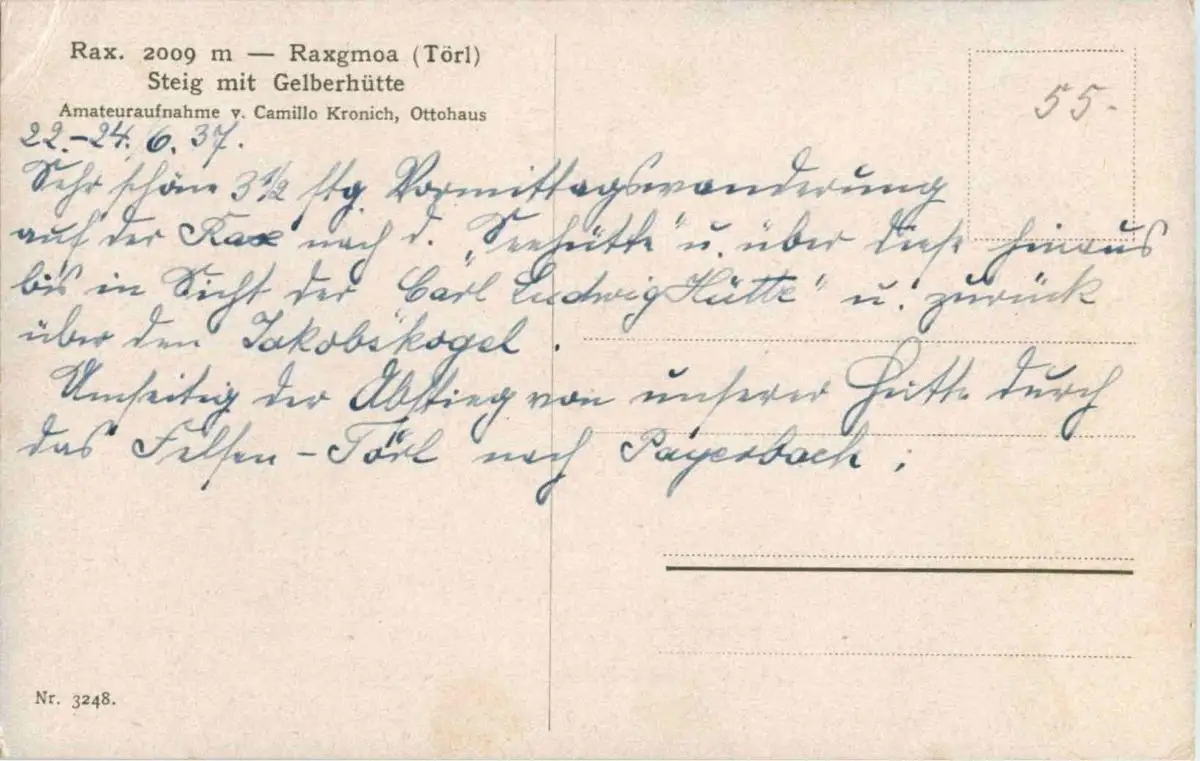 Rax. 2009 m — Raxgmoa (Törl)
Steig mit Gelberhütte
Amateuraufnahme v. Camillo Kronich, Ottohaus
55.-
22.-24. 6. 37.
Sehr schöne 3 1/2 stg. Vormittagswanderung
auf der Rax nach d. „Seehütte" u. über diese hinaus
bis in Sicht der „Carl Ludwig Hütte" u. zurück
über den Jakobskogel.
Umseitig der Abstieg von unserer Hütte durch
das Felsen-Törl nach Payerbach.
Nr. 3248.